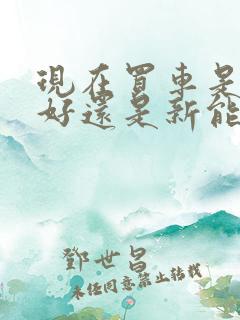 現在買車是
好還是新能
鄧世昌
未經同意禁止轉載